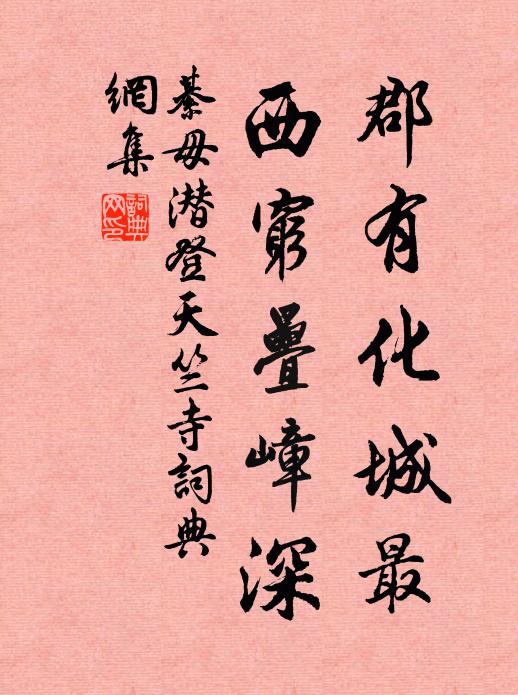 郡有化城最
西窮疊嶂深
綦毋潜登天竺寺詞典
網集
詞典网印